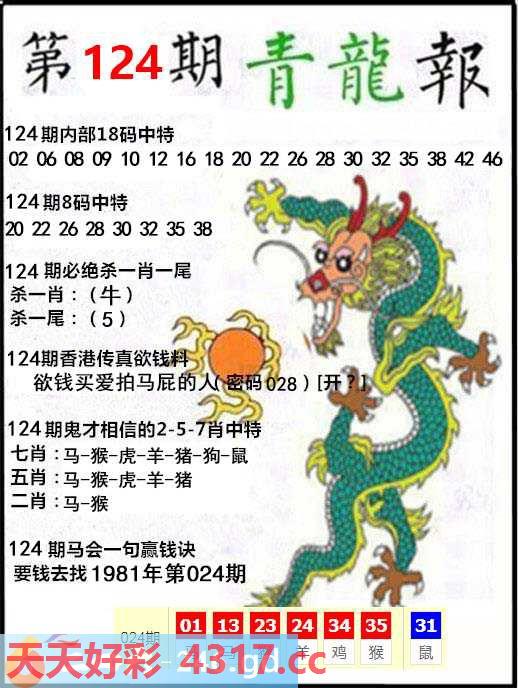 第124期 青龍報
124期内部18码中特
02 06 08 09 10 12 16 18 20 22 26 28 30 32 35 38 42 46
124期8码中特
20 22 26 28 30 32 35 38
124期必绝杀一肖一尾
杀一肖：（牛）
杀一尾：（5）
124期香港传真欲钱料
欲钱买爱拍马屁的人(密码028)[开?]
124期鬼才相信的2-5-7肖中特
七肖：马-猴-虎-羊-猪-狗-鼠
五肖：马-猴-虎-羊-猪
二肖：马-猴
124期马会一句赢钱诀
要钱去找1981年第024期
024期 01 13 23 24 34 35 31
羊 鸡 猴 鼠
天天好彩 4317.cc